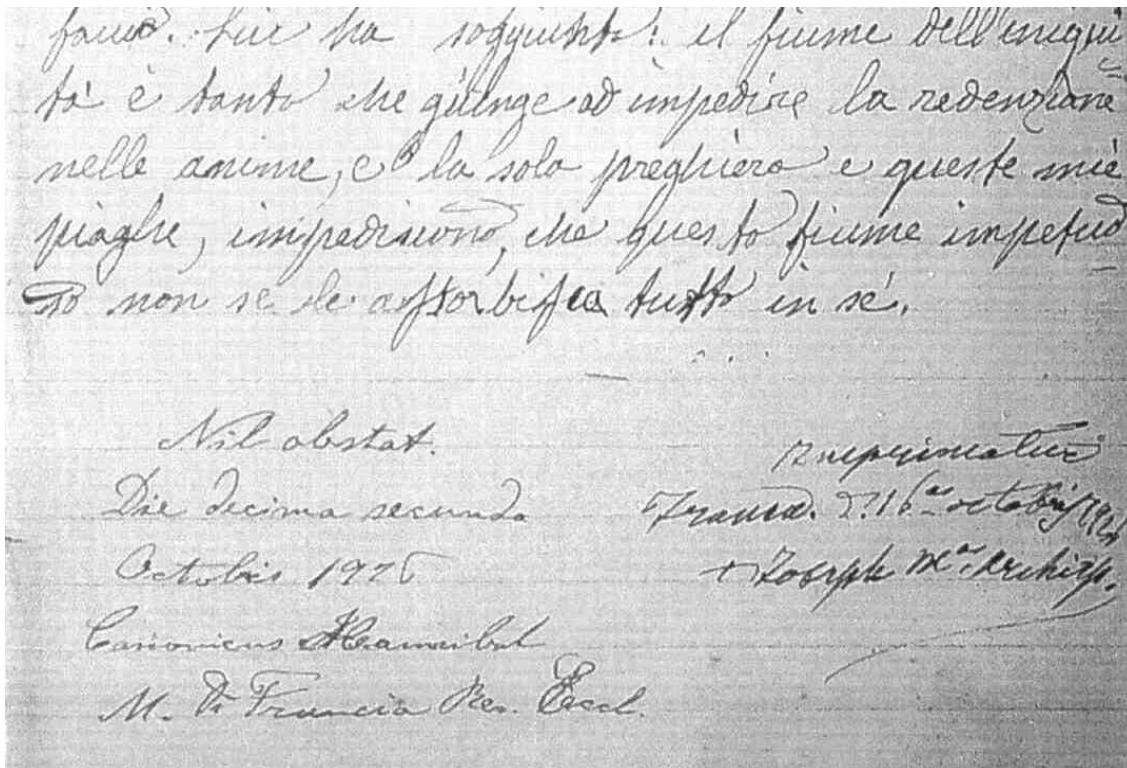 ha soggiunto: il fiume dell'iniqui
tà è tanto che giunge ad impedire la redenzione
nelle anime, e la sola preghiera e queste mie
piaghe, impediscono, che questo fiume impetuo
so non se le assorbisca tutto in sé.
Nil obstat.
Die decima secunda
Octobris 1926
Canonicus Hannibal
M. Di Francia Rev. Eccl.
Imprimatur
16 octobris 1926
+ Joseph Mª Archiep.